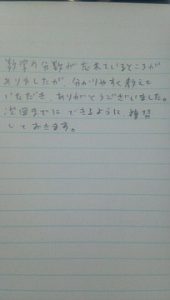 数学の分数が忘れているところが
ありましたが、分かりやすく教えて
いただき、ありがとうございました。
次回までにできるように、練習
しておきます。